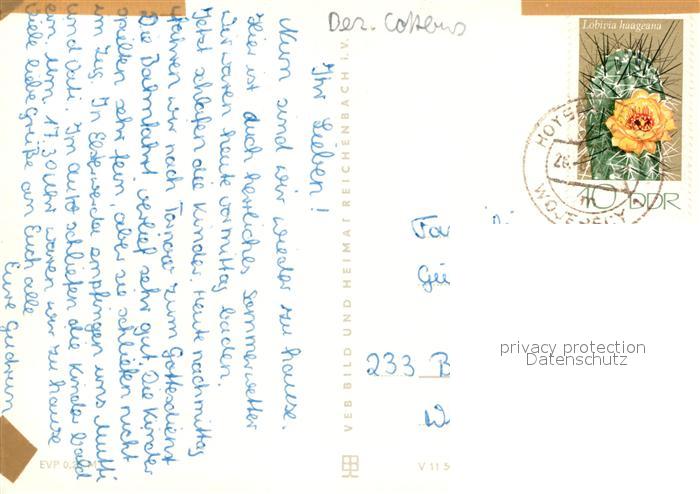 Bez. Cottbus
Ihr Lieben!
Nun sind wir wieder zu hause.
Hier ist auch herrliches Sommerwetter
Wir waren heute vormittag baden.
Jetzt schlafen die Kinder. Heute nachmittag
fahren wir nach zum Gottesdienst
Die Bahnfahrt verlief sehr gut. Die Kinder
spielten sehr fein, aber sie schliefen nicht
im Zug. In Elsterwerda empfingen uns Mutti
und Vati. Im Auto schliefen die Kinder bald
ein. Um 17.30 Uhr waren wir zu hause
Viele liebe Grüße an Euch alle
Eure Gudrun
EVP 0,20 M
VEB BILD UND HEIMAT REICHENBACH I. V.
V 11 5
Lobivia haageana
10 DDR
HOYS
WOJERECY
Fa
Gü
233 B
W
privacy protection
Datenschutz